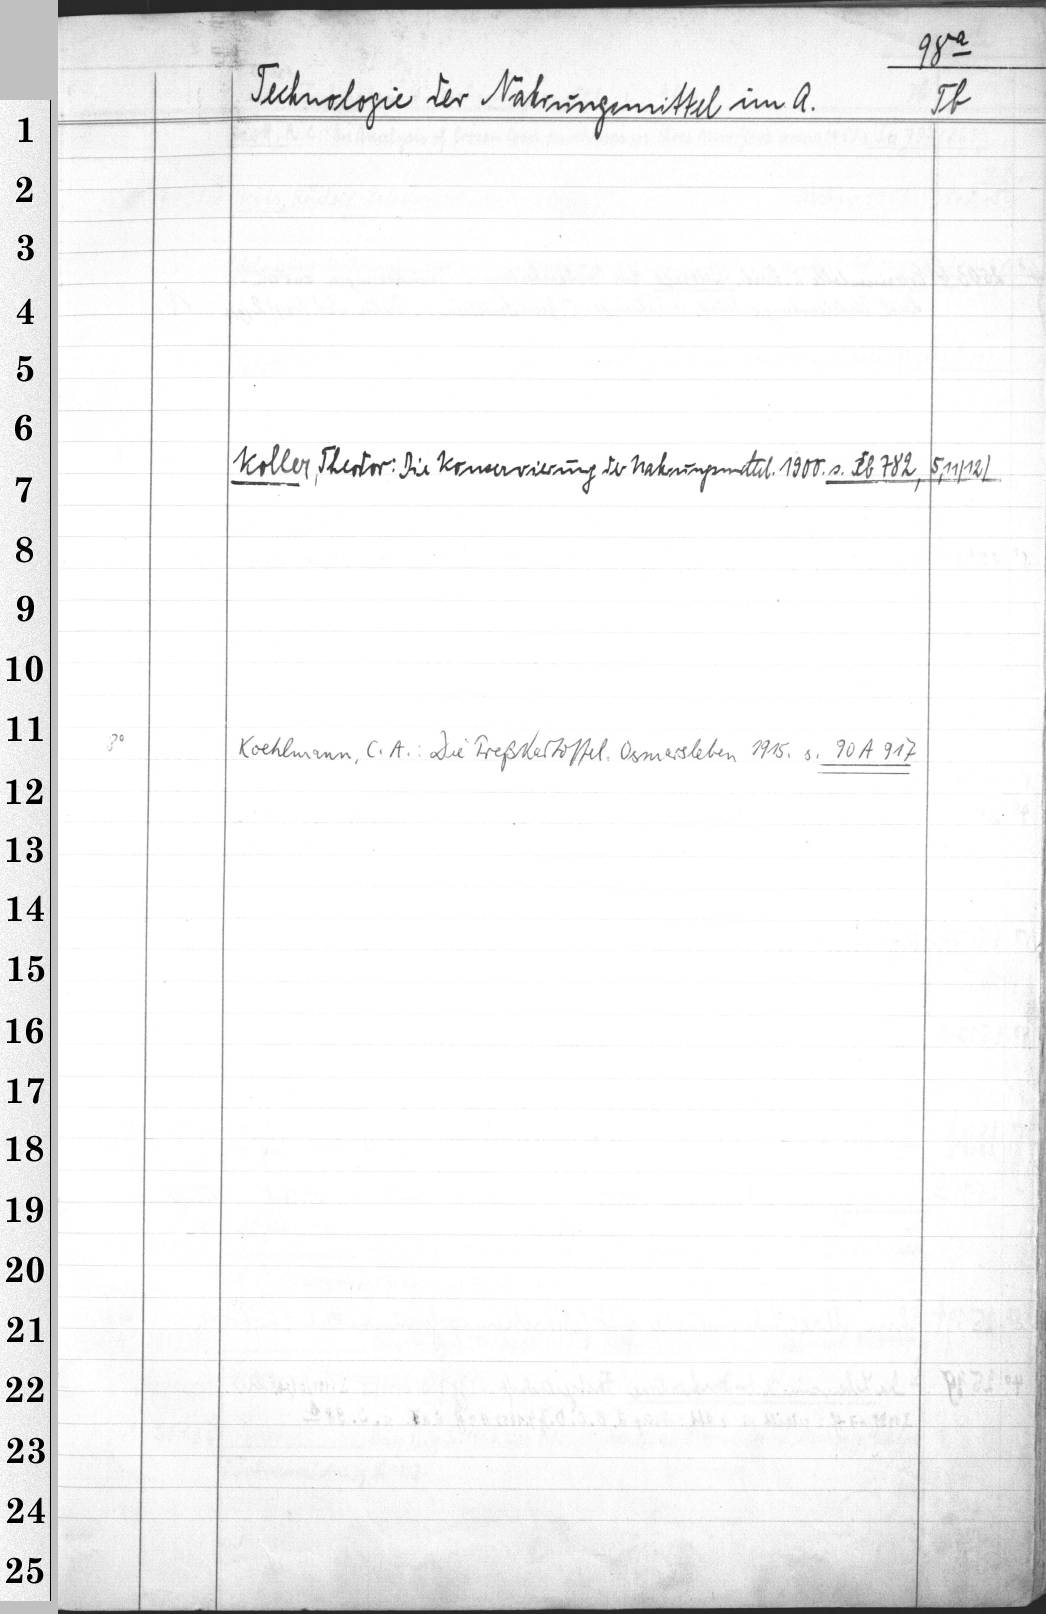 98a
Technologie der Nahrungsmittel im A. Tb
1
2
3
4
5
6
Koller, Theodor: Die Konservierung der Nahrungsmittel. 1900. s. Tb 782, 5,11/12/
7
8
9
10
11
8° Koehlmann, C. A.: Die Preßkartoffel. Osmarsleben 1915. s. 90 A 917
12
13
14
15
16
17
18
19
20
21
22
23
24
25